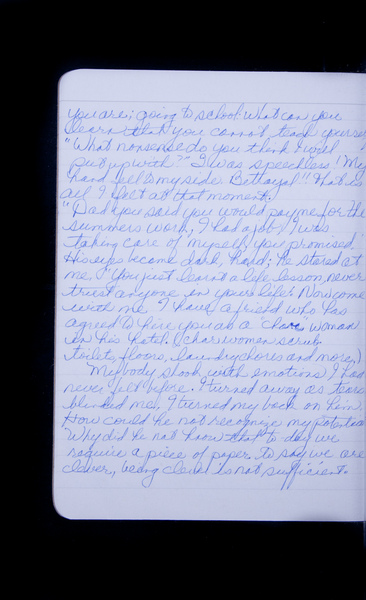 you are; going to school what can you
learn that you cannot teach yourself
"What nonsense do you think I will
put up with?" I was speechless! My
hand fell to my side. Betrayal!! That is
all I felt at that moment.
"Dad you said you would pay me for the
summers work, I had a job, I was
taking care of myself, you promised.
His eyes become dark, hard; he stared at
me. "You just learnt a life lesson, never
trust anyone in your life. Now come
with me I have a friend who has
agreed to hire you as a "char" woman
in his hotel. (charwomen scrub
toilets, floors, laundry chores and more,)
My body shook with emotions I had
never felt before. I turned away as tears
blinded me, I turned my back on him.
How could he not recognize my potential
Why did he not know that to day we
require a piece of paper to say we are
clever, being clever is not sufficient.